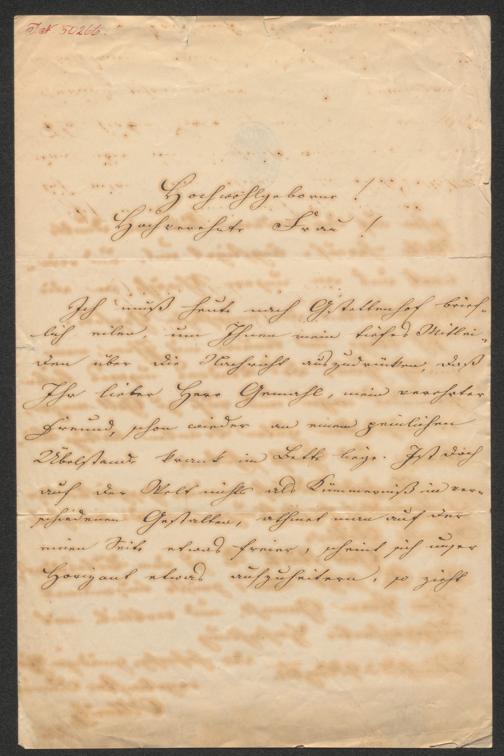 50266
Hochwohlgeborne!
Hochverehrte Frau!
Ich muß heute nach Gstattenhof brief-
lich eilen, um Ihnen mein tiefes Mitlei-
den über die Nachricht auszudrücken, daß
Ihr lieber Herr Gemahl, mein verehrter
Freund, schon wieder an einem peinlichen
Übelstande krank im Bette liege. Ist doch
auf der Welt nichts als Kümmerniß in ver-
schiedenen Gestalten, athmet man auf der
einen Seite etwas freier, scheint sich unser
Horizont etwas aufzuheitern, so zieht